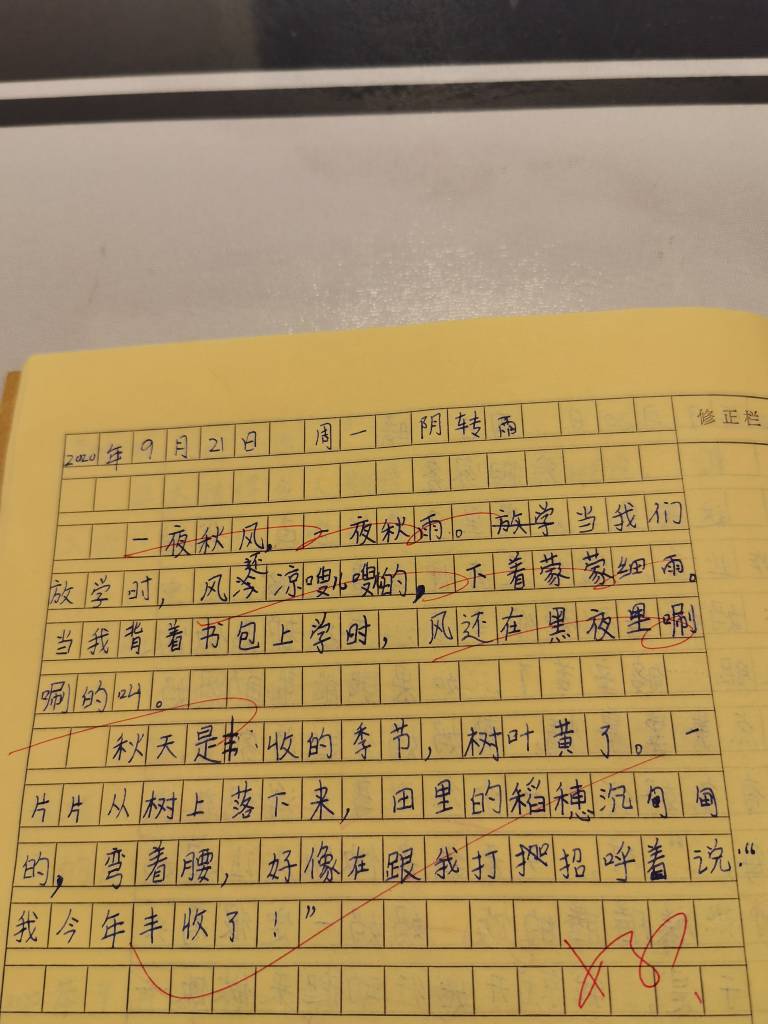 修正栏
2020年9月21日 周一 阴转雨
一夜秋风，一夜秋雨。放学当我们
放学时，风还凉嗖嗖的，下着蒙蒙细雨。
当我背着书包上学时，风还在黑夜里唰
唰的叫。
秋天是丰收的季节，树叶黄了。一
片片从树上落下来，田里的稻穗沉甸甸
的，弯着腰，好像在跟我打招呼着说：“
我今年丰收了！”